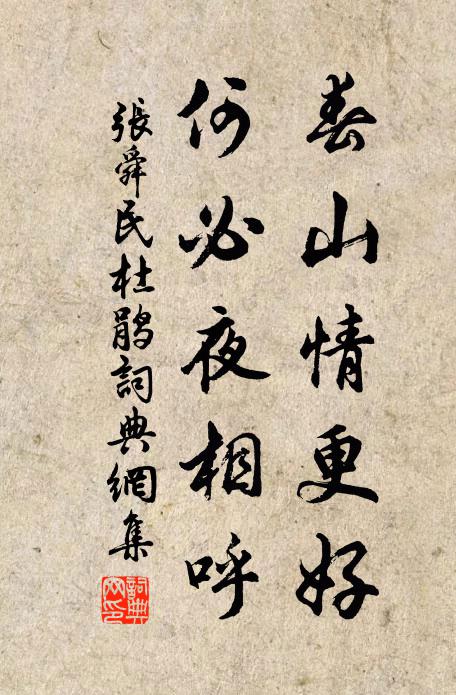 春山情更好
何必夜相呼
張舜民杜鵑詞典網集
詞典
网印